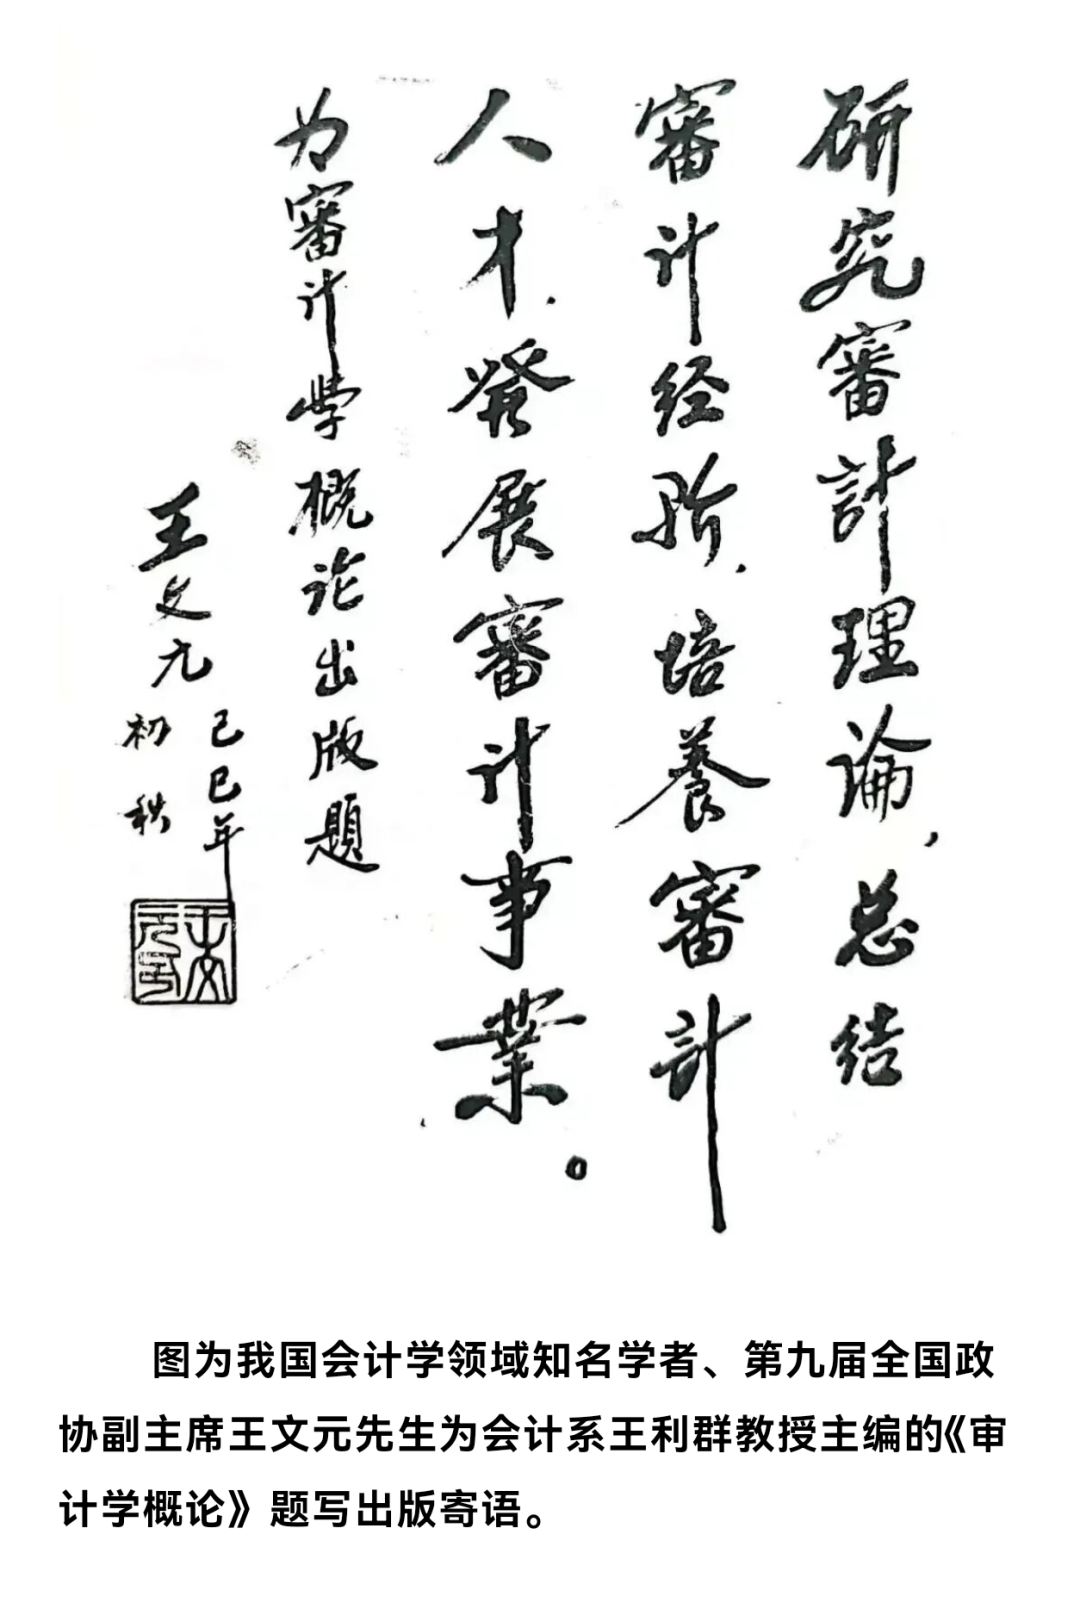 研究審計理論，总结
審计经验，培養審計
人才，發展審计事業。
为審计学概论出版题
王文元
己巳年
初秋
王文元印
图为我国会计学领域知名学者、第九届全国政
协副主席王文元先生为会计系王利群教授主编的《审
计学概论》题写出版寄语。